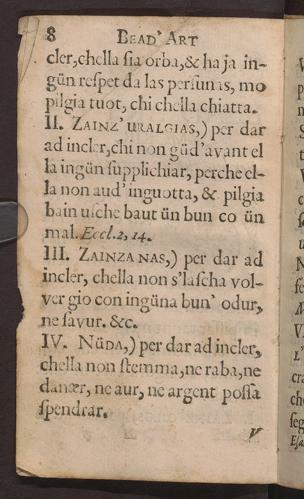 8 BEAD' ART
cler, chella ſia orba, & ha ja in-
gün reſpet da las perſunas, mo
pilgia tuot, chi chella chiatta.
II. ZAINZ' URALGIAS,) per dar
ad incler, chi non güd' avant el
la ingün ſupplichiar, perche el-
la non aud' inguotta, & pilgia
bain uſche baut ün bun co ün
mal. Eccl. 2, 14.
III. ZAINZA NAS,) per dar ad
incler, chella non s'laſcha vol-
ver gio con ingüna bun' odur,
ne ſavur. &c.
IV. NÜDA,) per dar ad incler,
chella non ſtemma, ne raba, ne
danær, ne aur, ne argent poſſa
ſpendrar.
V